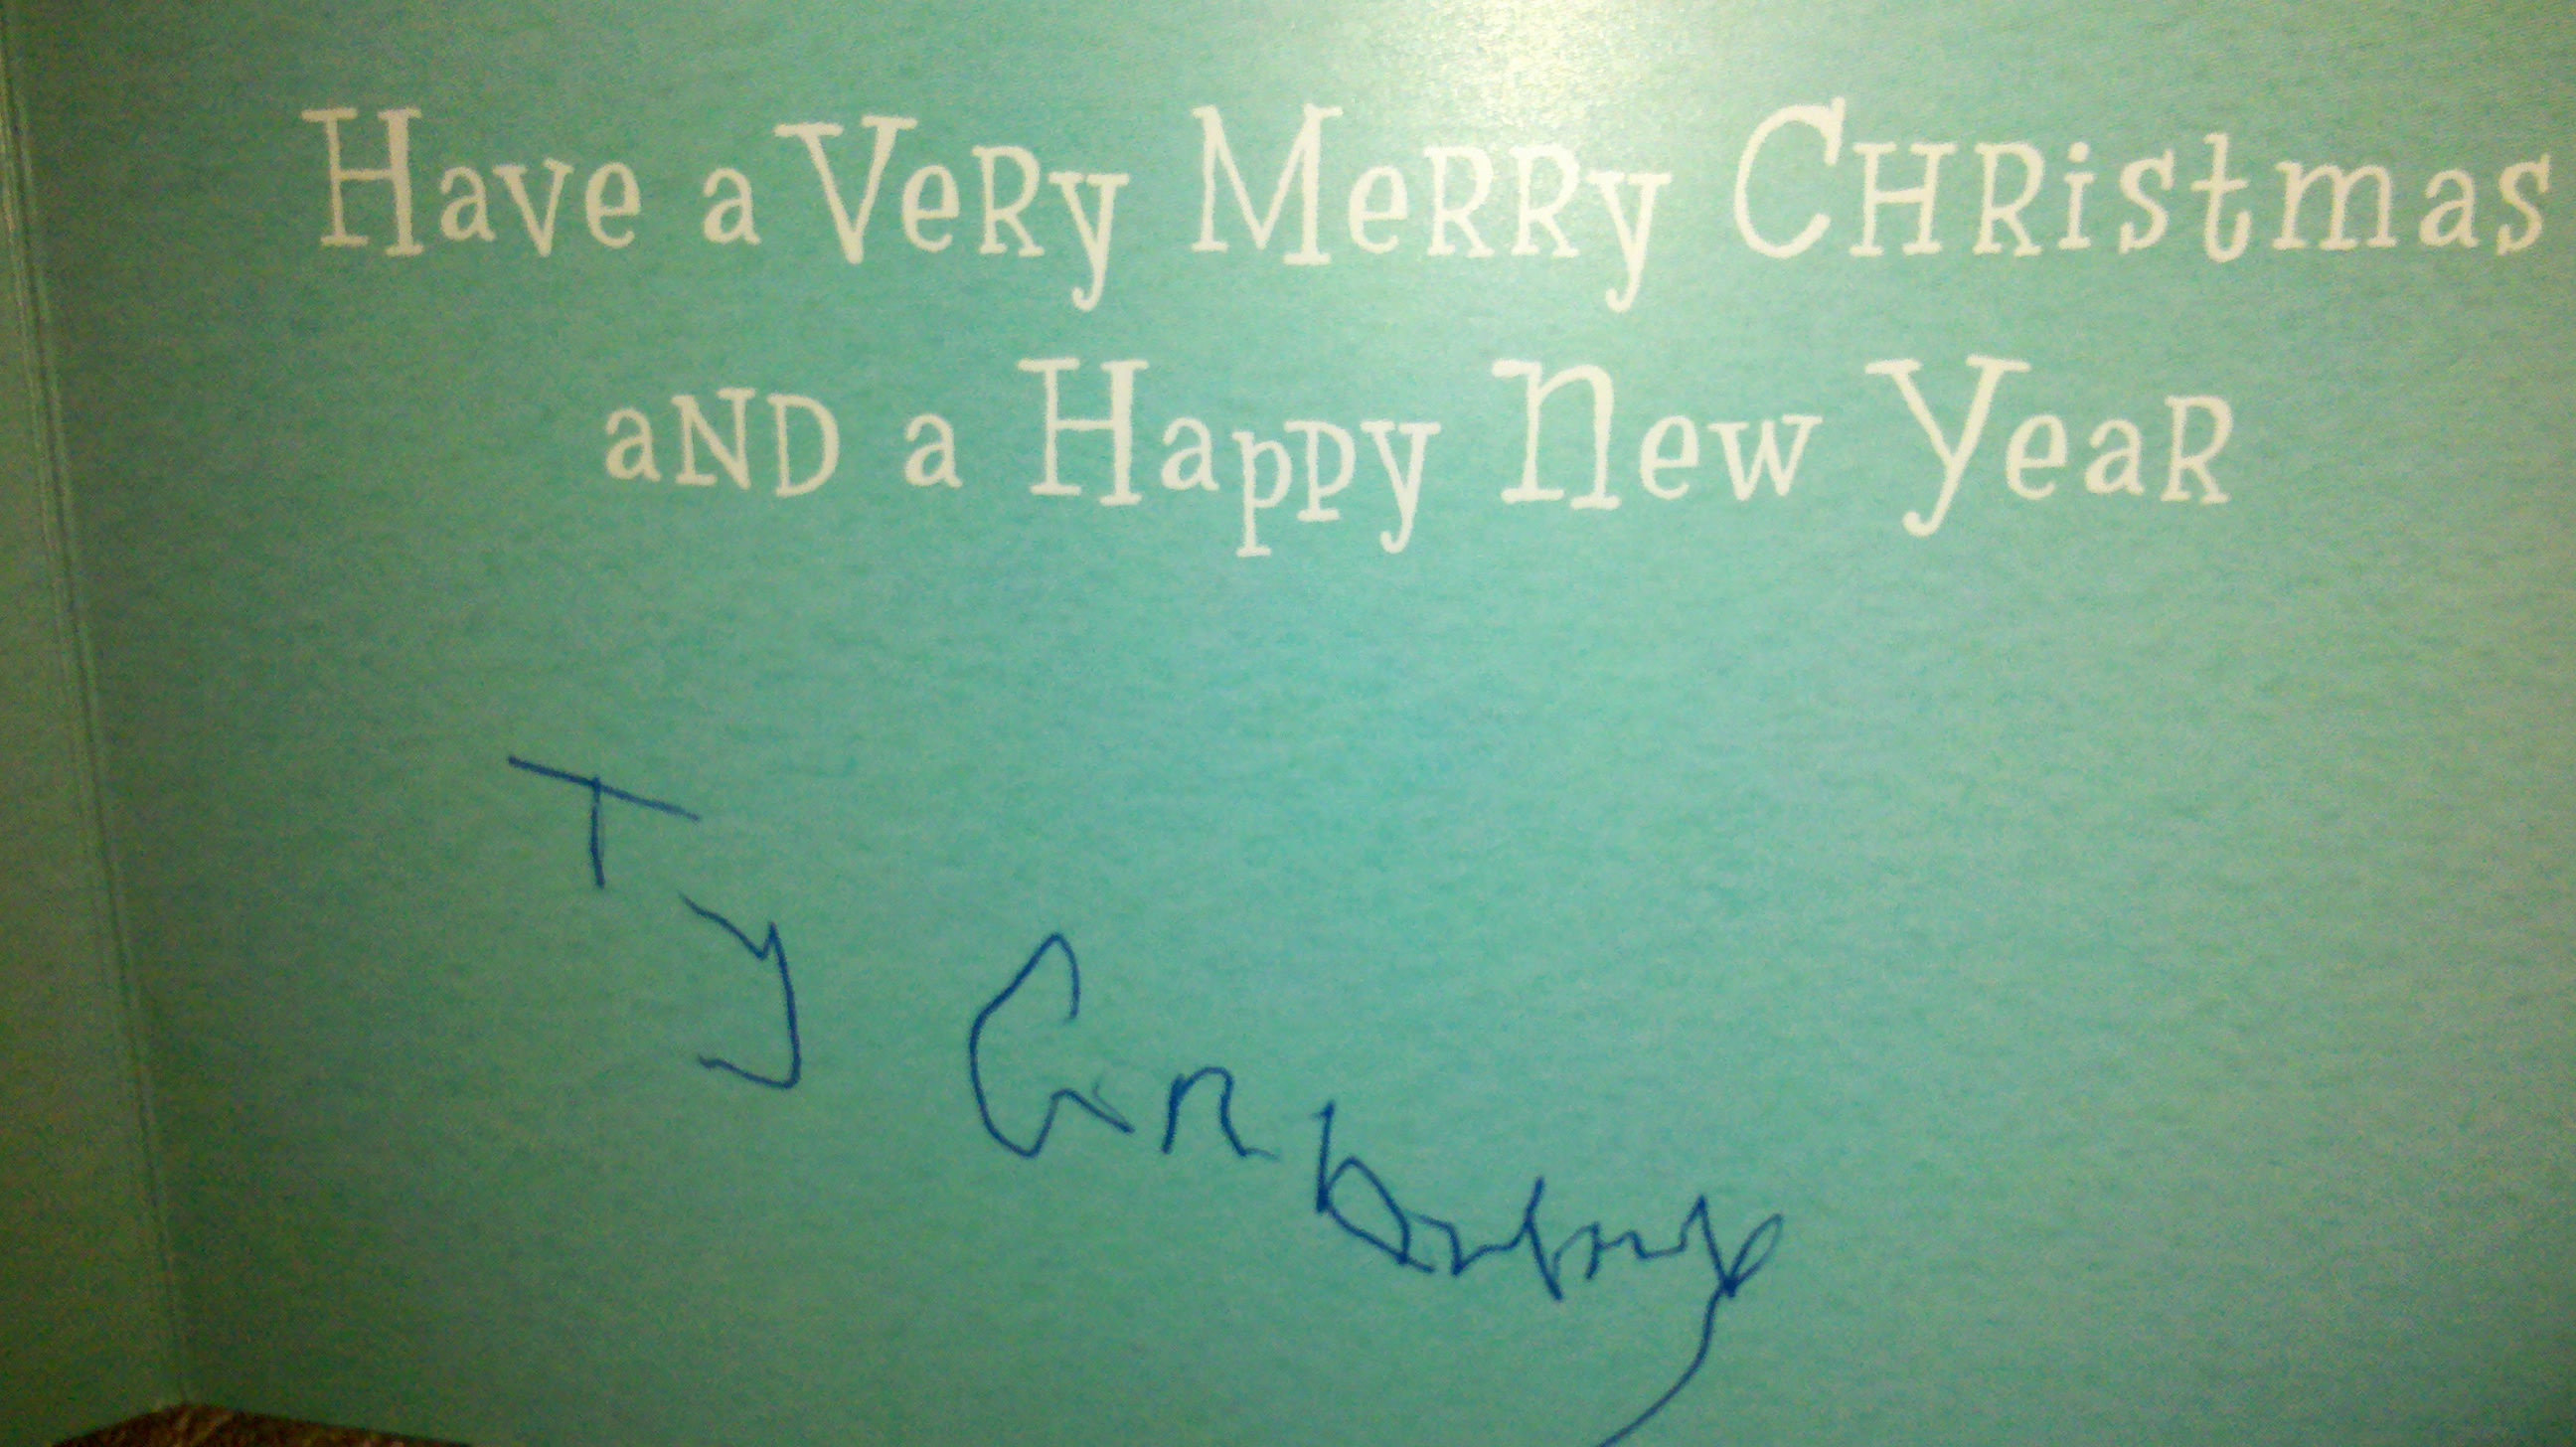 Have a Very Merry Christmas
and a Happy New Year
Ty